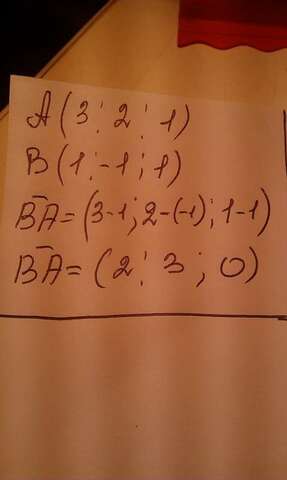 A (3; 2; 1)
B (1; -1; 1)
BA = (3-1; 2-(-1); 1-1)
BA = (2; 3; 0)